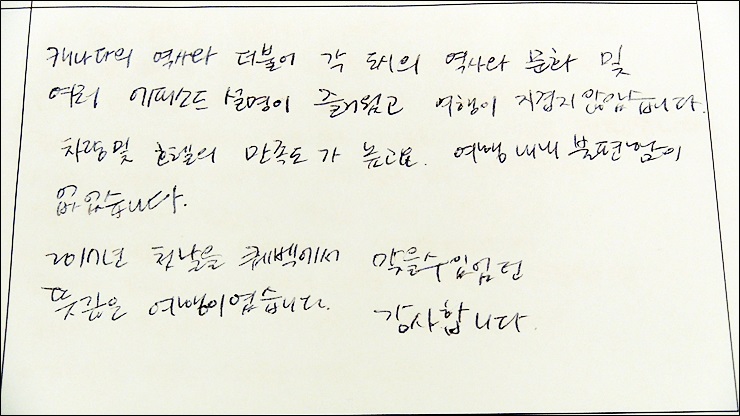 캐나다의 역사와 더불어 각 도시의 역사와 문화 및
여러 에피소드 설명이 즐거웠고 여행이 지겹지 않았습니다.
차량및 호텔의 만족도가 높고요. 여행내내 불편함이
없었습니다.
2017년 첫날을 퀘벡에서 맞을수있었던
뜻깊은 여행이였습니다. 감사합니다.